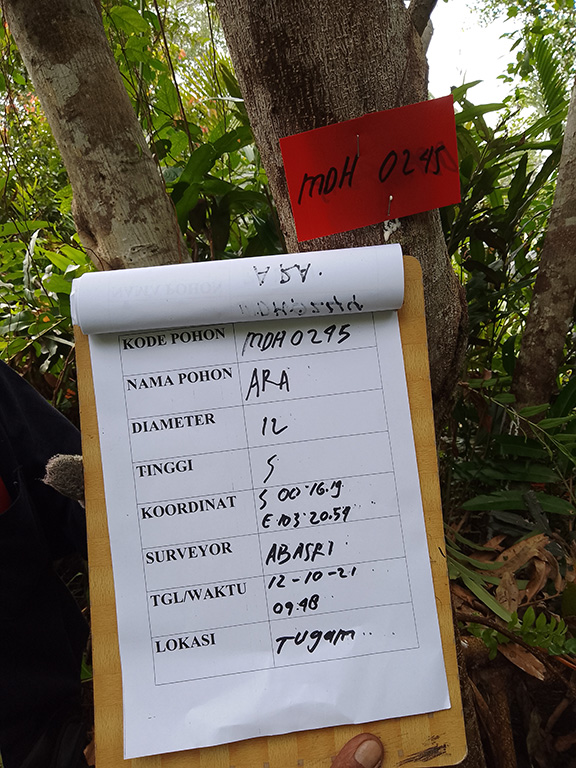 MDH 0295
ARA.
KODE POHON MDH 0295
NAMA POHON ARA
DIAMETER 12
TINGGI 5
KOORDINAT S 00°16.19
E 103°20.59
SURVEYOR ABASRI
TGL/WAKTU 12-10-21
09.48
LOKASI TUgam